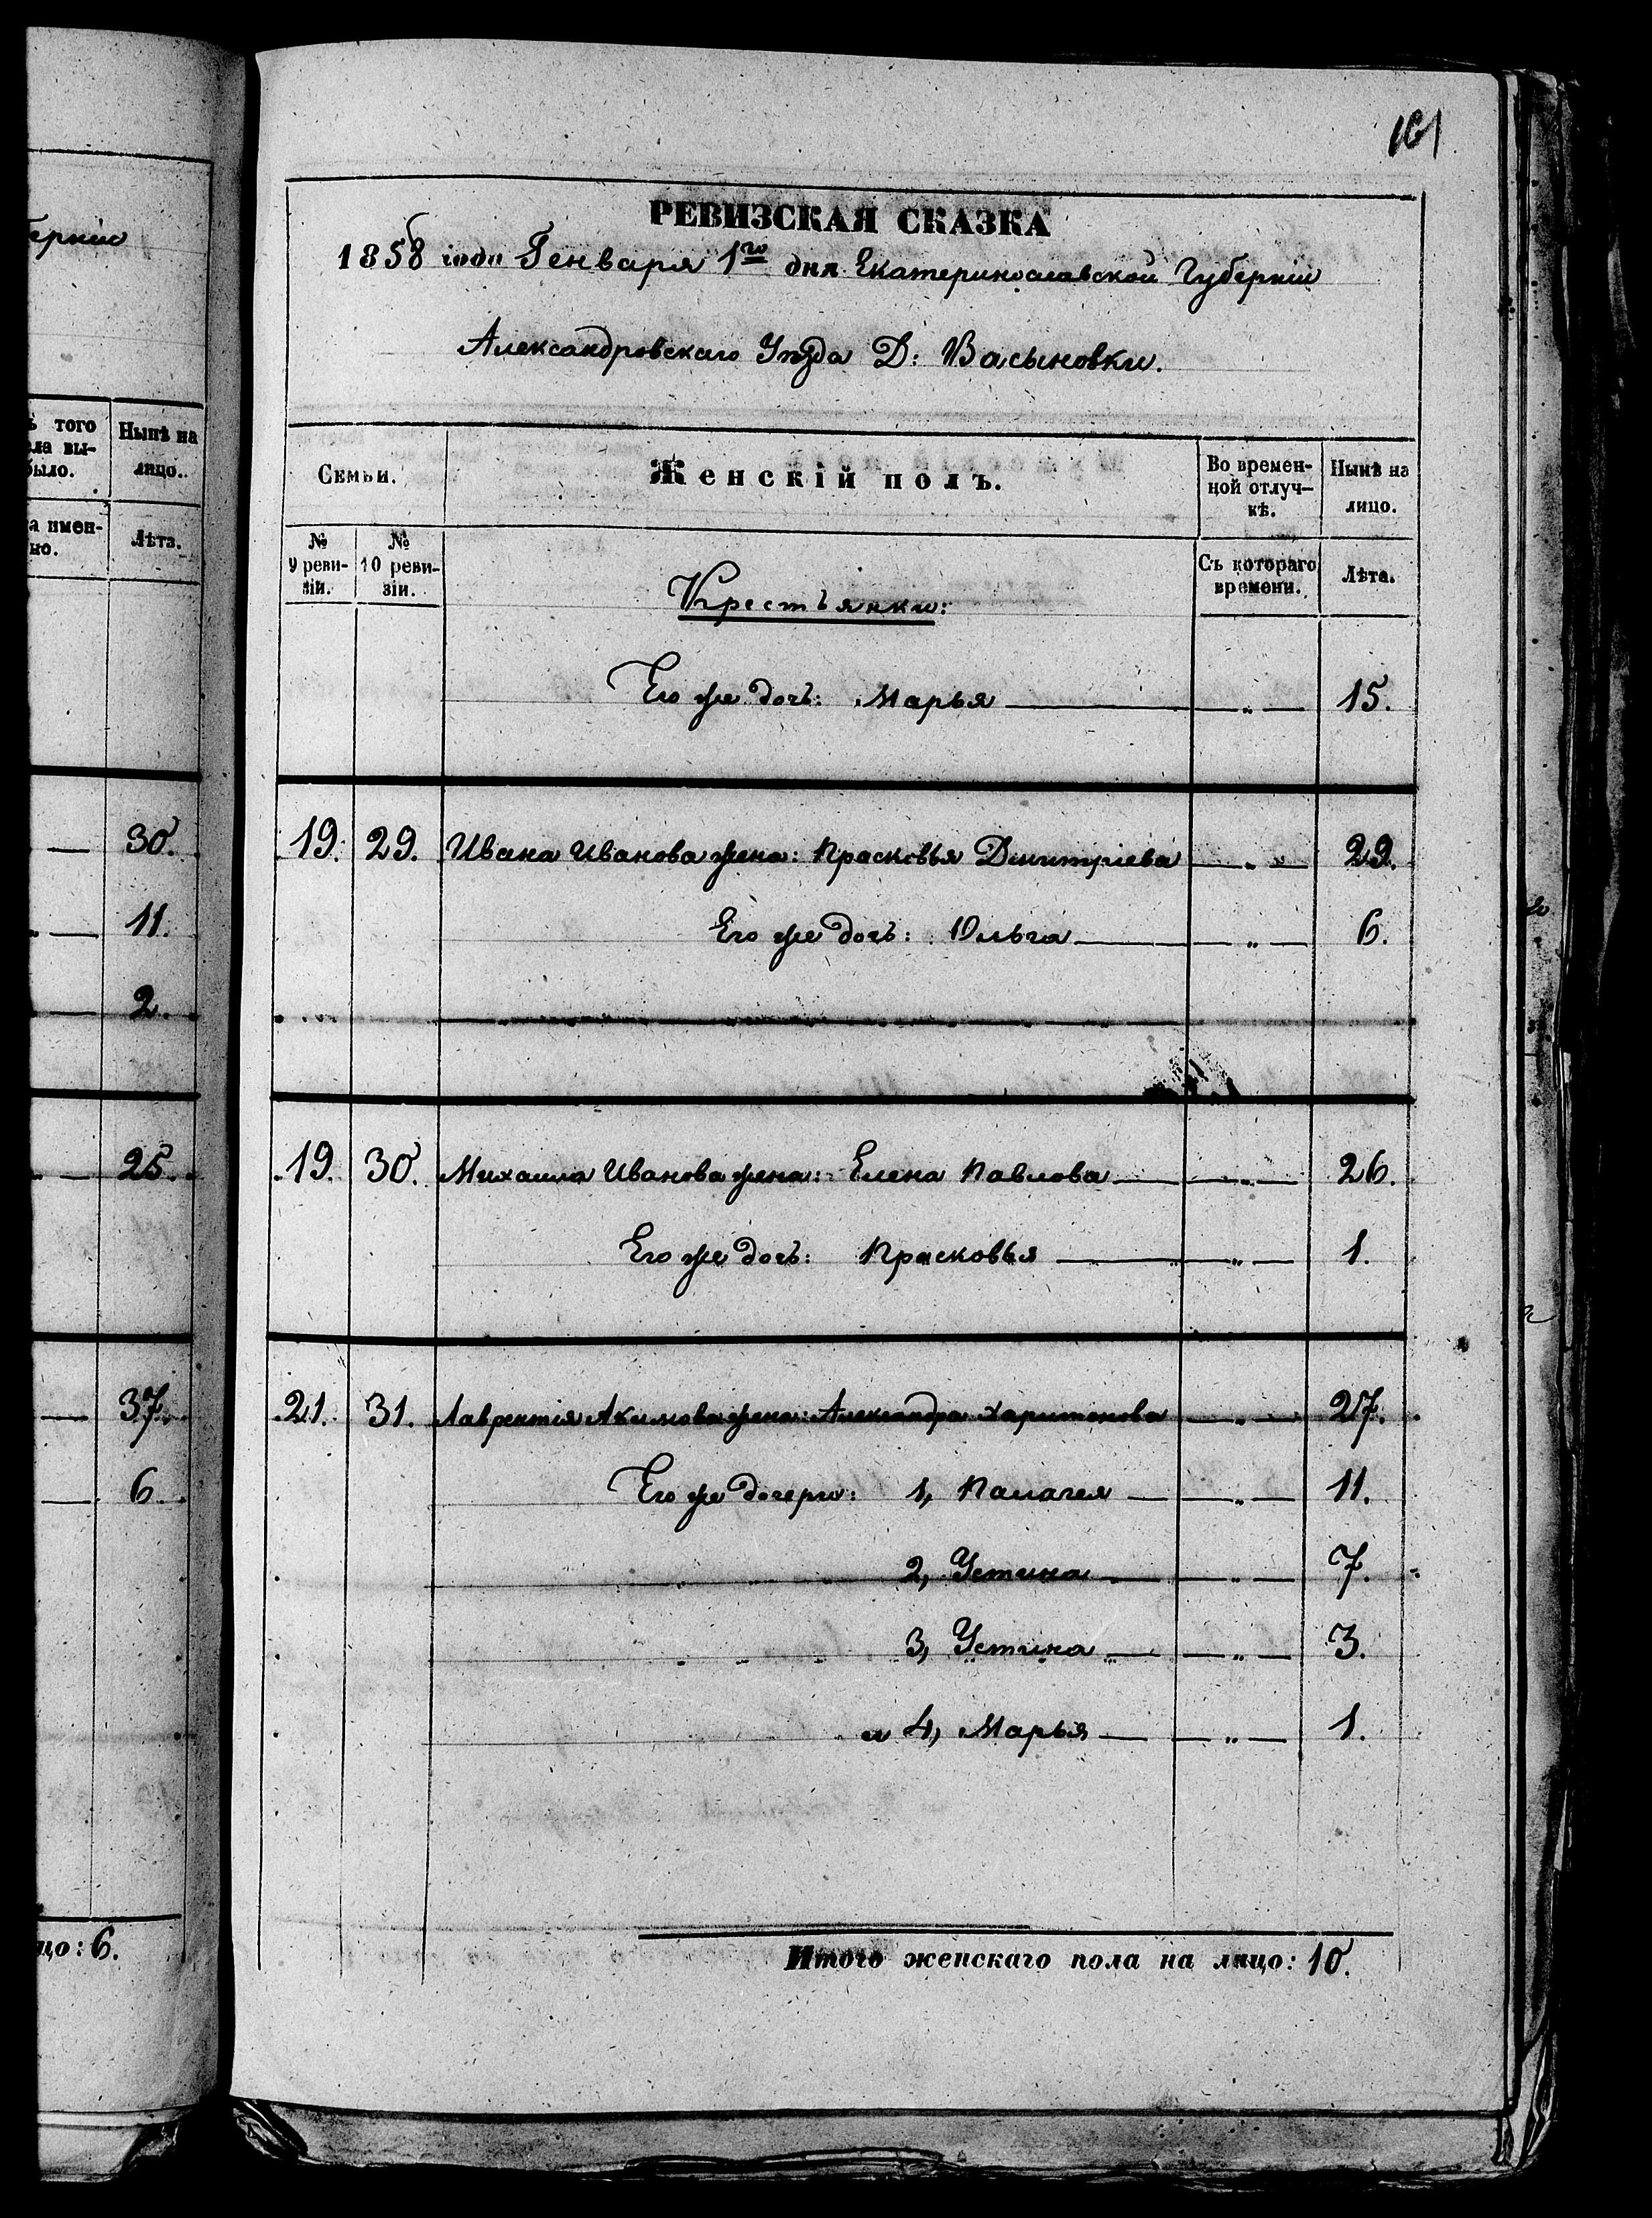 161
ерніи
ѣ того
ла вы-
было.
Нынѣ на
лицо.
а имен-
но.
Лѣта.
30.
11.
2.
25.
37.
6.
цо: 6.
РЕВИЗСКАЯ СКАЗКА
1858 года Генваря 1го дня Екатеринославской Губерніи
Александровскаго Уѣзда Д: Васыновки.
Семьи.
Женскій полъ.
Во времен-
ной отлуч-
кѣ.
Нынѣ на
лицо.
№
9 реви-
зіи.
№
10 реви-
зіи.
Съ котораго
времени.
Лѣта.
Крестьянки:
Его же дочь: Марья — „ — 15.
19. 29. Ивана Иванова жена: Прасковья Дмитріева — „ — 29.
Его же дочь: Ольга — „ — 6.
19. 30. Михаила Иванова жена: Елена Павлова — „ — 26.
Его же дочь: Прасковья — „ — 1.
21. 31. Лаврентія Акимова жена: Александра Харитонова — „ — 27.
Его же дочери: 1, Палагея — „ — 11.
2, Устина — „ — 7.
3, Устина — „ — 3.
и 4, Марья — „ — 1.
Итого женскаго пола на лицо: 10.